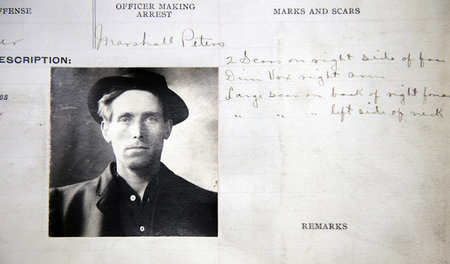 FFENSE
OFFICER MAKING
ARREST
MARKS AND SCARS
er
Marshall Peters
ESCRIPTION:
2 Scars on right side of fac
Dim Vox right arm
es
Large scar on back of right forear
" " " left side of neck
REMARKS